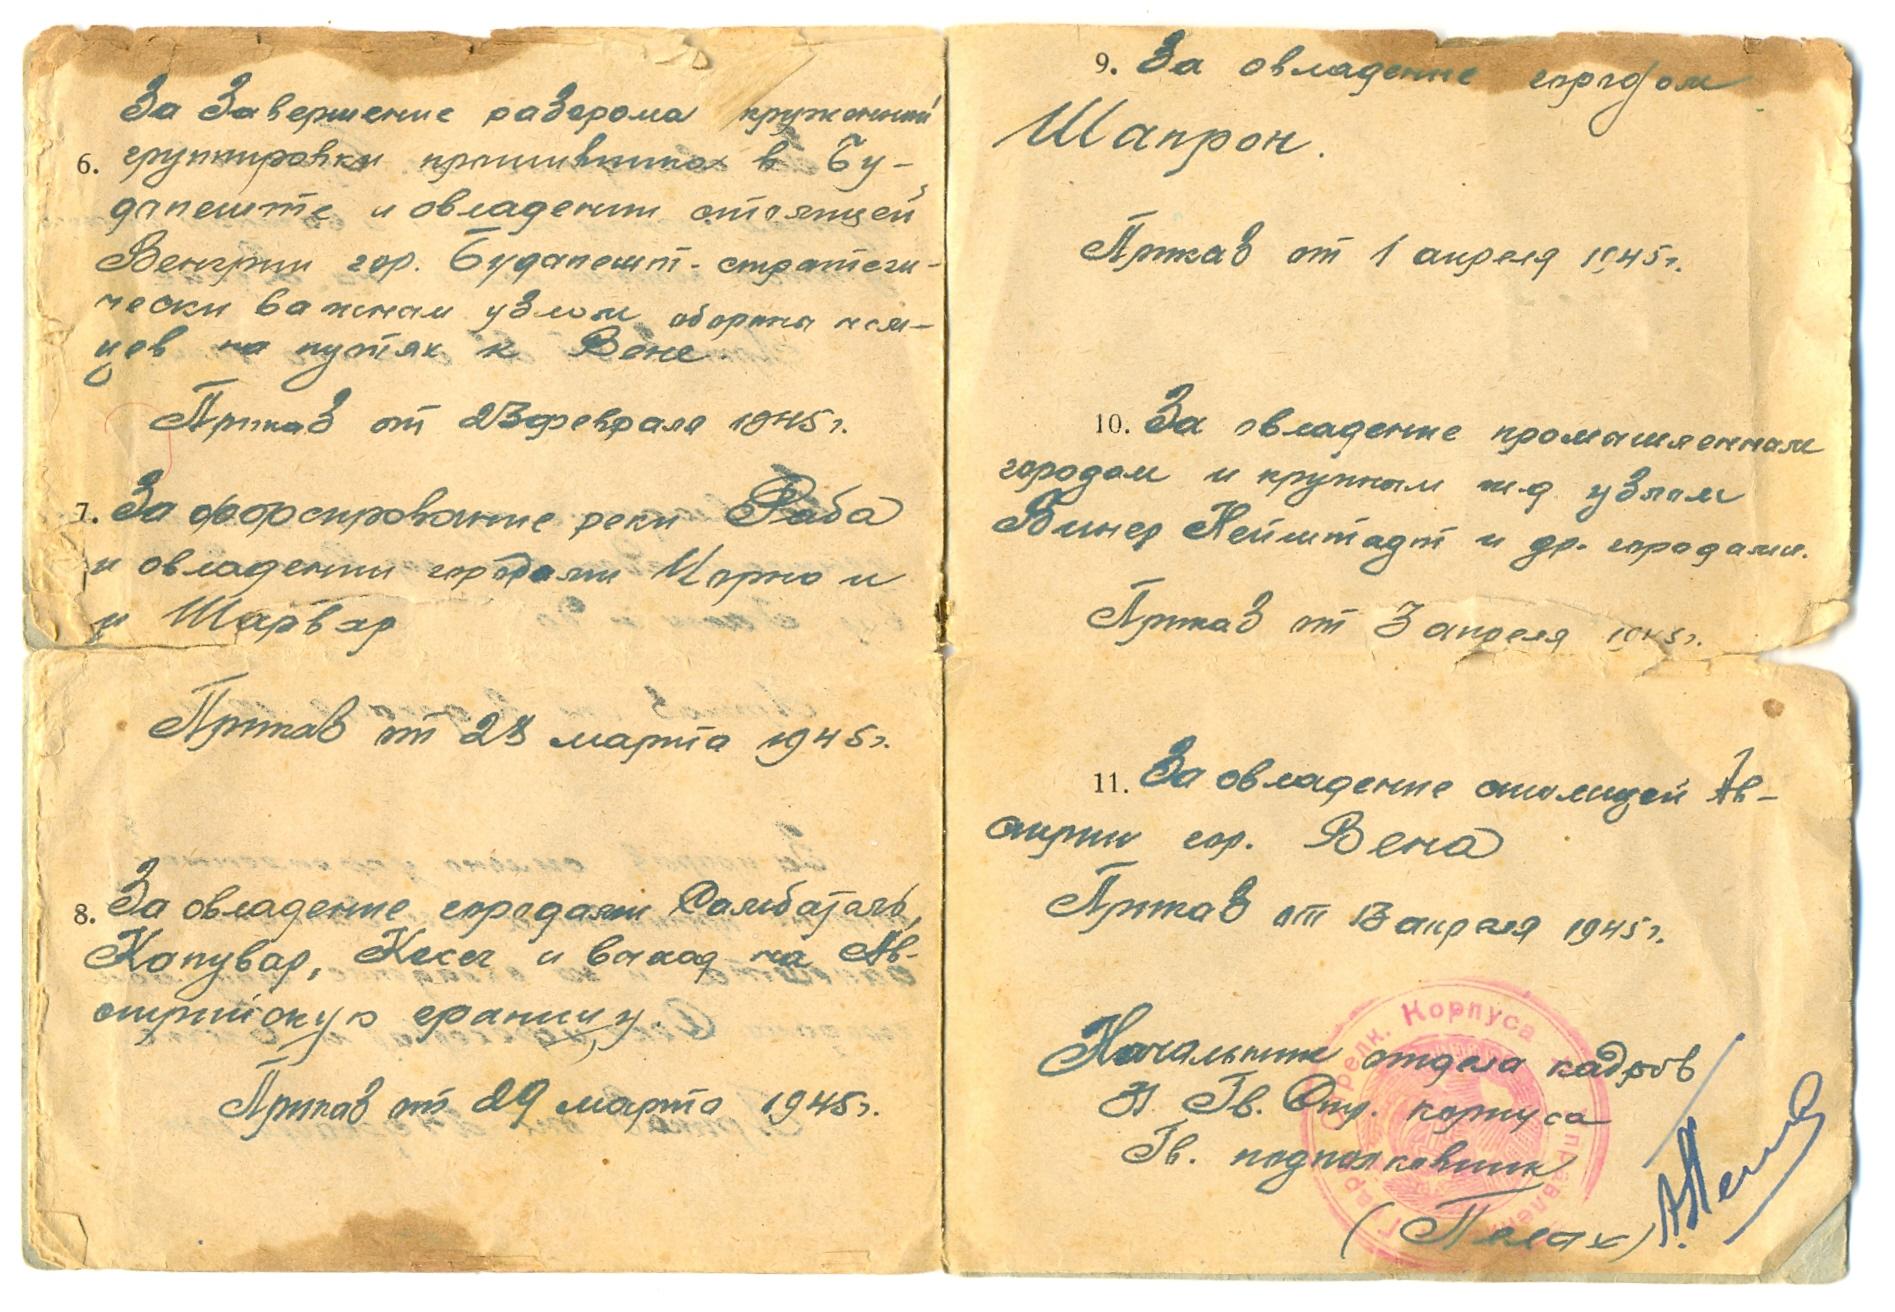 6. За Завершение разгрома кружонный
группировки противника в Бу-
дапеште и овладении столицей
Венгрии гор. Будапешт - стратеги-
чески важным узлом обороны нем-
цев на путях к Вене.
Приказ от 23 февраля 1945 г.
7. За форсирование реки Раба
и овладении городами Чорно и
и Шарвар
Приказ от 28 марта 1945 г.
8. За овладение городами Сомбатель,
Капувар, Кесег и выход на Ав-
стрийскую границу
Приказ от 29 марта 1945 г.
9. За овладение городом
Шапрон.
Приказ от 1 апреля 1945 г.
10. За овладение промышленным
городом и крупным ж.д. узлом
Винер Нейштадт и др. городами.
Приказ от 3 апреля 1945 г.
11. За овладение столицей Ав-
стрии гор. Вена
Приказ от 13 апреля 1945 г.
Начальник отдела кадров
Гв. Стр. корпуса
Гв. подполковник
(Пелах)
Стрелк. Корпуса